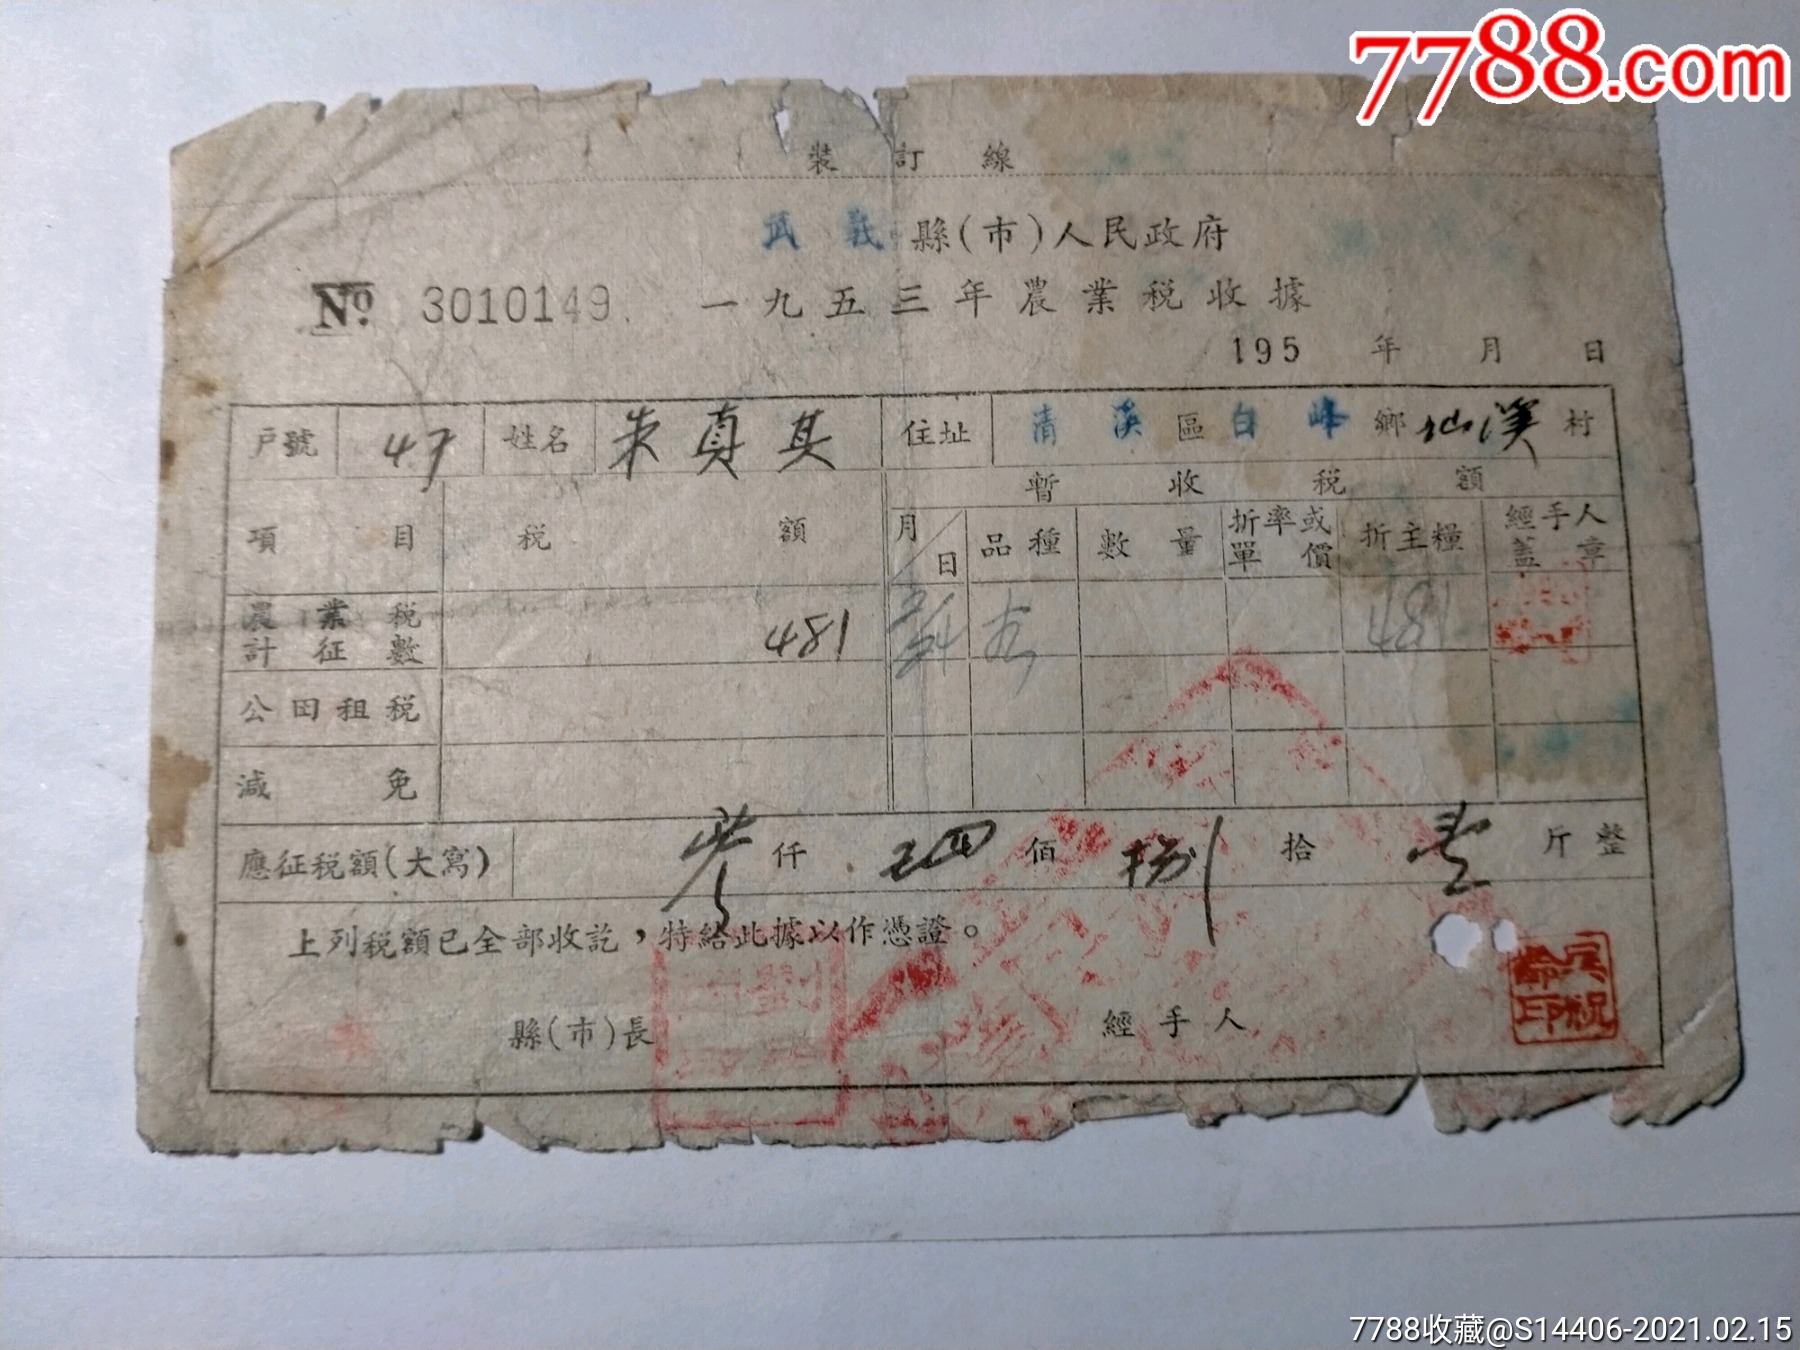 7788.com
裝訂線
武義縣(市)人民政府
№ 3010149. 一九五三年農業税收據
195 年 月 日
戶號 47 姓名 朱真其 住址 清溪區白峰鄉仙溪村
暫收税額
項目 税額 月日 品種 數量 折率或單價 折主糧 經手人蓋章
農業税計征數 481 481
公田租税
減免
應征税額(大寫) 仟 四佰 捌拾 壹斤整
上列税額已全部收訖，特給此據以作憑證。
縣(市)長 經手人
7788收藏@S14406-2021.02.15